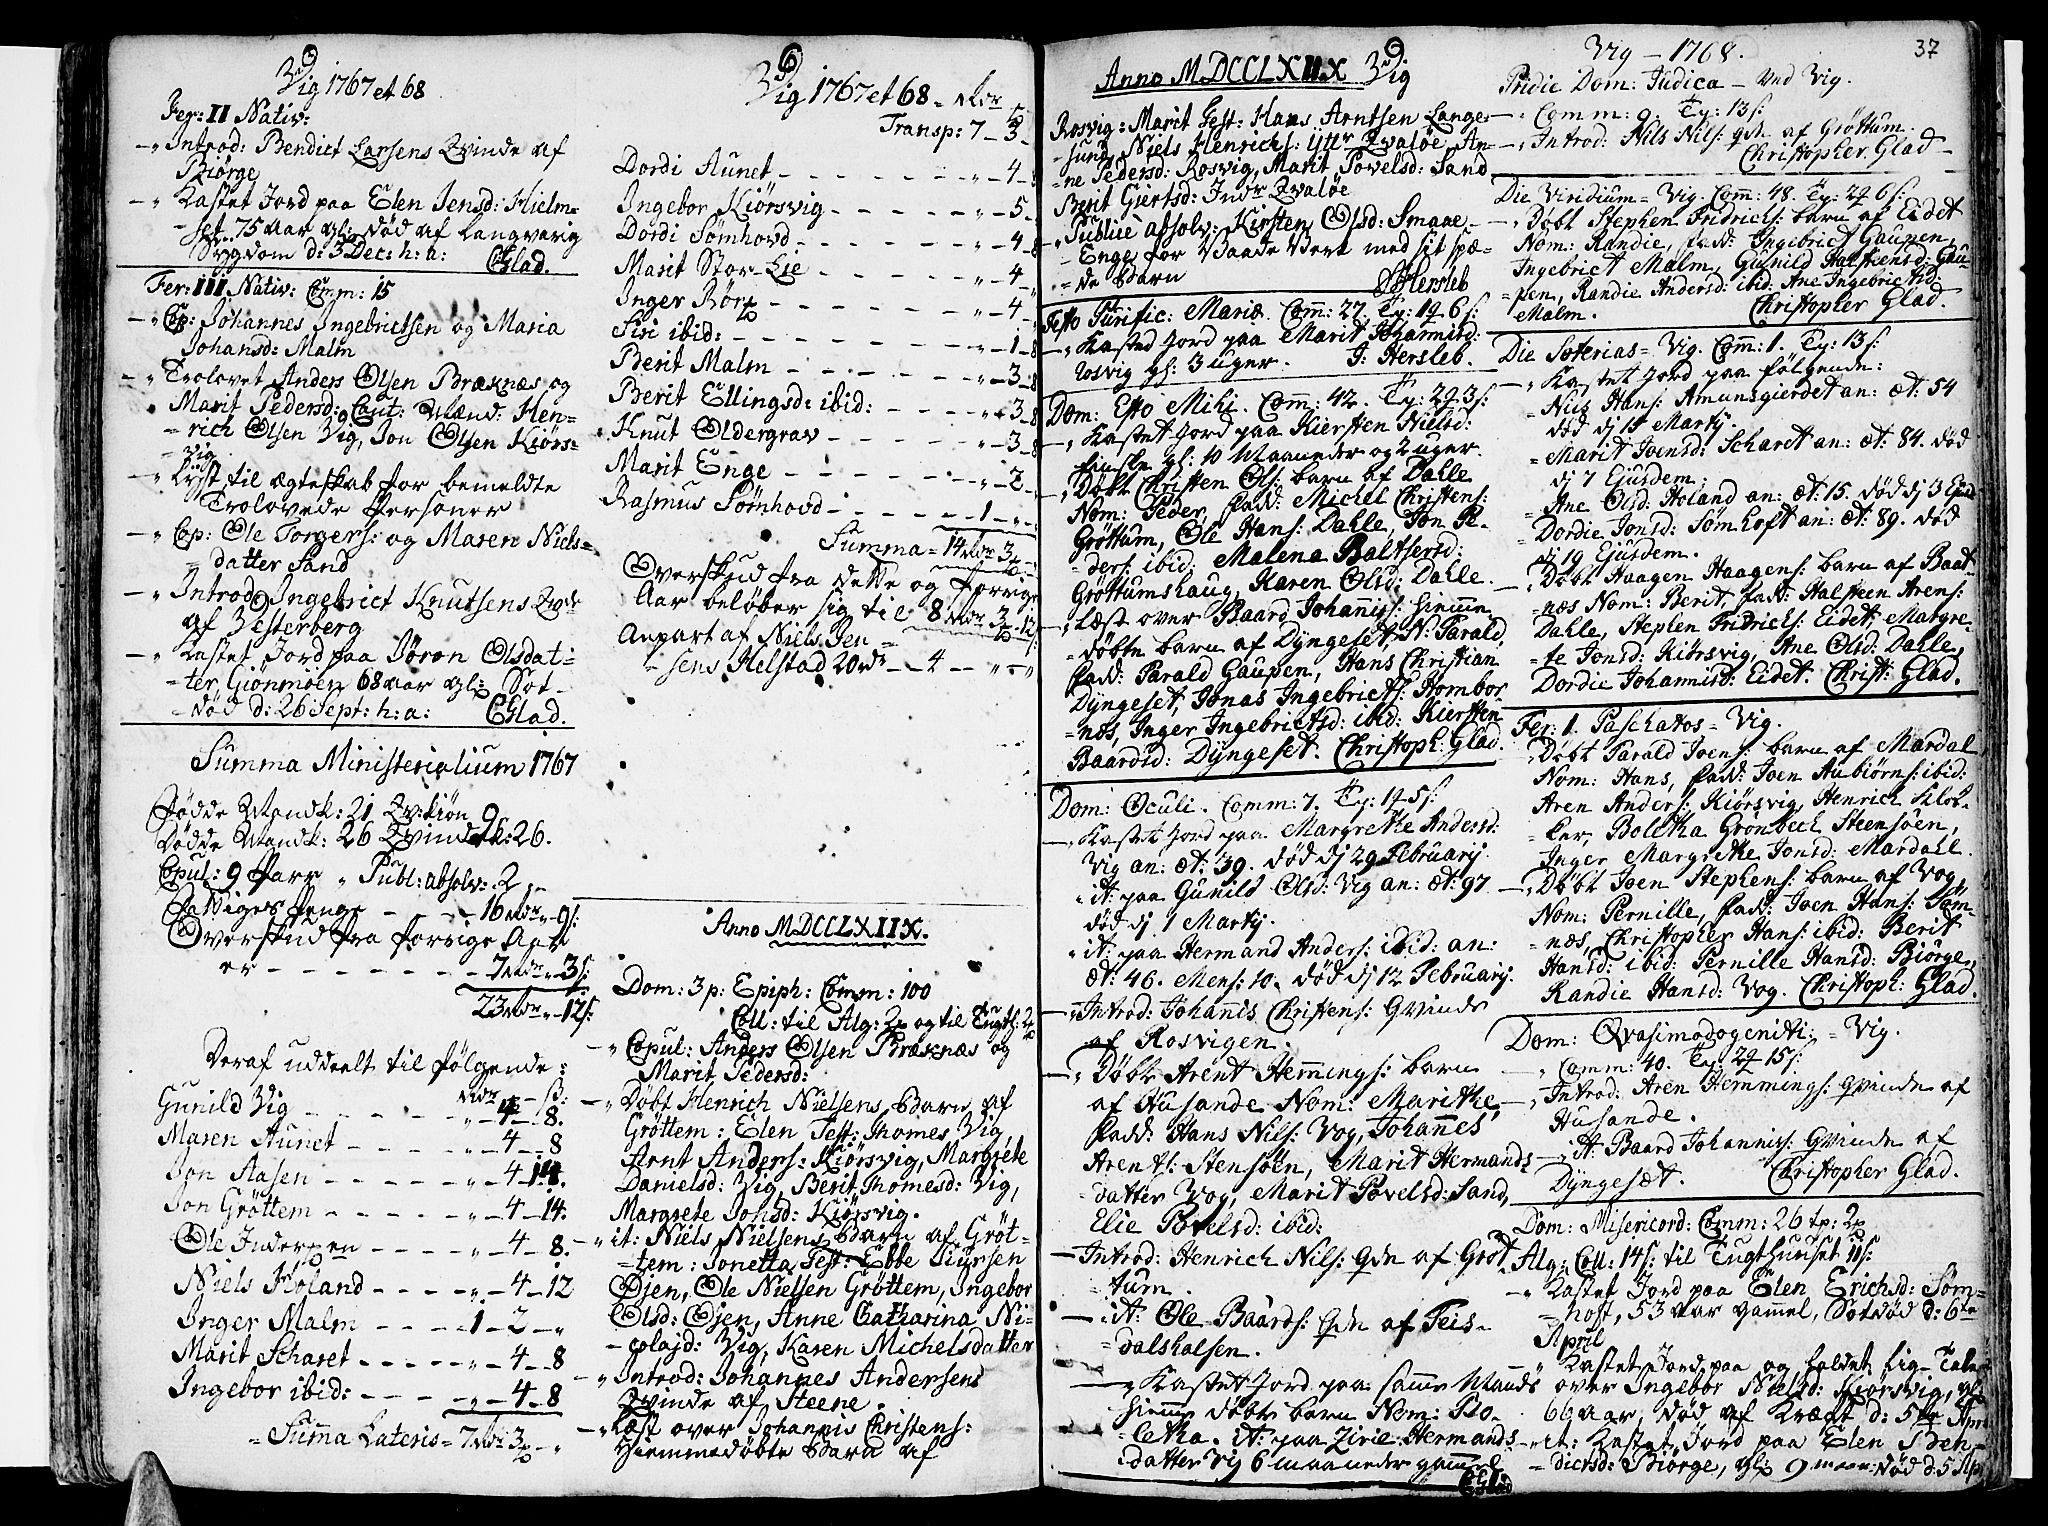 Vig 1767 et 68
Fer: II Nativ:
-" Introd: Bendict Larsens Qvinde af
Biörge
-" Kastet Jord paa Elen Jensd: Hielm=
=set 75 aar gl: død af Langvarig
Sygdom d: 3 Dec: h: a: CGlad.
Fer: III Nativ: Comm: 15
-" Cop: Johannes Ingebrictsen og Maria
Johansd: Malm
-" Trolovet Anders Olsen Bræknæs og
Marit Pedersd: Caut: Hen=
=rich Olsen Vig, Jon Olsen Kiörs=
=vig
-" Lyst til ægteskab for bemeldte
Trolovede Personer
-" Cop: Ole Torgers: og Maren Niels=
=datter Sand
-" Introd: Ingebrict Knutsens Qvde
af Vesterberg
-" Kastet Jord paa Jören Olsdat=
=ter Giönmoen 68 aar gl: Sot=
=død d: 26 Sept: h: a: CGlad.
Summa Ministerialium 1767
Födde Mandk: 21 Qvkiön 26
Dödde Mandk: 26 Qvindek: 26.
Copul: 9 Parr " Publ: absolv: 2
Fattiges Penge - - - 16 rdr " 9 s:
Overskud fra forrige Aar
er - - - - - - - 7 rdr " 3 s:
23 rdr " 12 s:
Deraf uddeelt til følgende:
rdr - s:
Gunild Vig - - - - " - 4 - 8.
Maren Aunet - - - " - 4 - 8
Jon Aasen - - - - " - 4 - 14.
Jon Gröttem - - - - " - 4 - 14.
Ole - - - - " - 4 - 8.
Niels Holand - - - - " - 4 - 12
Inger Malm - - - - 1 - 2 - "
Marit Scharet - - - - " - 4 - 8
Ingebor ibid: - - - - " - 4 - 8
= Summa Lateris = 7 rdr 3 - "
Vig 1767 et 68 -
Transp: 7 - 3 -
Dordi Aunet - - - - - - " - 4 -
Ingebor Kiörsvig - - - - - " - 5 -
Dordi Sömhovd - - - - - " - 4 - 8
Marit Stor-Lie - - - - - " - 4 -
Inger Rörx - - - - - - " - 4 -
Siri ibid: - - - - - - - " - 1 - 8
Berit Malm - - - - - - " - 3 - 8
Berit Ellingsd: ibid: - - - - " - 3 - 8
Knut Oldergrav - - - - - " - 3 - 8
Marit Enge - - - - - - " - 2 -
Rasmus Sömhovd - - - - - 1 - " -
Summa = 14 rdr 3
Overskud fra dette og forrige
Aar beløber sig til 8 rdr 3 - 12 s:
Anpart af Niels Jen=
=sens Helstad 20 rdr - - 4 - - " - "
Anno MDCCLXIIX.
Dom: 3 p: Epiph: Comm: 100
Coll: til Alg: 2 og til Tugth: 2
-" Copul: Anders Olsen Bræknæs og
Marit Pedersd:
-" Døbt Henrich Nielsens Barn af
Gröttem: Elen Test: Thomes Vig,
Arnt Anders: Kiörsvig, Margrete
Danielsd: Vig, Berit Thomesd: Vig,
Margrete Johsd: Kiörsvig.
-" it: Niels Nielsens Barn af Gröt=
=tem: Jonetta Test: Ebbe Siursen
Öjen, Ole Nielsen Gröttem, Ingebor
Olsd: Öjen, Anne Catharina Ni=
=colajd: Vig, Karen Michelsdatter
-" Introd: Johannes Andersens
Qvinde af Steene.
-" Læst over Johannis Christens:
Hiemmedøbte Barn af
Anno MDCCLXIIX Vig
Rosvig: Marit Test: Hans Arntsen Lange=
=sund, Niels Henrichs: ytt: Qvaløe, An=
=ne Pedersd: Rosvig, Marit Povelsd: Sand
Berit Giertsd: Indr Qvaløe
-" Publice absolv: Kirsten Olsd: Smaae-
-Enge for Baade Vert med sit spæ=
=de Barn JHersleb
Festo Purific: Mariæ. Comm: 27. 6 s:
-" Kasted Jord paa Marit Johannisd:
Rosvig gl: 3 uger. J: Hersleb.
Dom: Esto Mihi. Comm: 42. 3 s:
-" Kastet Jord paa Kiersten Nielsd:
gl: 10 Maaneder og 2 uger
-" Døbt Christen Ols: barn af Dahle
Nom: Peder, fadd: Michel Christens:
Gröttum, Ole Hans: Dahle, Jon Pe=
=ders: ibid: Malena Baltsersd:
Gröttumshaug, Karen Olsd: Dahle.
-" Læst over Baard Johanniss: hiemme
=døbte barn af Dyngeset, N: Parald,
fadd: Parald Gaupen, Hans Christian
Dyngeset, Jonas Ingebricts: Hombor
=næs, Inger Ingebrictsd: ibid: Kiersten
Baardsd: Dyngeset. Christoph: Glad.
Dom: Oculi. Comm: 7. 5 s:
-" Kastet Jord paa Margrethe Andersd:
Vig an: æt: 39. død dj 29 Februarij.
" it: paa Gunild Olsd: Vig an: æt: 97
død dj 1 Martij.
" it: paa Hermand Anders: ibid: an:
æt: 46. Mens: 10. død dj 12 Februarij.
-" Introd: Johannis Christens: Qvinde
af Rosvigen.
-" Døbt Arent Hemings: barn
af Husande Nom: Marithe,
fadd: Hans Nils: Vog, Johannes
Arents: Stensöen, Marit Hermands
=datter Vog, Marit Povelsd: Sand,
Elie Povelsd: ibid:
- Introd: Henrich Nils: Qde af Gröt
=tum.
- it: Ole Baards: Qde af Teis=
=dalshalsen.
-" Kastet Jord paa samme Mands
hiemme døbte barn Nom: Bo=
=letha. it: paa Zirie Hermands
datter Vig 6 maaneder gammel
CGl:
Vig - 1768.
37
Pridie Dom: Judica - ved Vig.
-" Comm: 9. 13 s:
-" Introd: Nils Nils: qde af Gröttum.
Christopher Glad -
Die Viridium = Vig. Comm: 48. 6 s:
-" Døbt Stephen Fridrichs: barn af Eidet
Nom: Randie, fadd: Ingebrict Gaupen,
Ingebrict Malm, Gunild Halstensd: Gau=
=pen, Randie Andersd: ibid: Ane Ingebrictsd:
Malm. Christopher Glad.
Die Soterias = Vig. Comm: 1. 13 s:
-" Kastet Jord paa følgende:
= Nils Hans: Amunsgierdet an: æt: 54
død dj 15 Martij.
= Marit Joensd: Scharet an: æt: 84. død
dj 7 Ejusdem.
= Ane Olsd: Holand an: æt: 15. død dj 3 Ejusd
= Dordie Jonsd: Sömhoft an: æt: 89. død
dj 19 Ejusdem.
-" Døbt Haagen Haagens: barn af Baat=
=næs Nom: Berit, fadd: Halsteen Arens:
Dahle, Stephen Fritrichs: Eidet, Margre=
=te Jonsd: Kiörsvig, Ane Olsd: Dahle,
Dordie Johannisd: Eidet. Christ: Glad.
Fer: 1. Paschatos = Vig.
-" Døbt Parald Joens: barn af Mardal
Nom: Hans, fadd: Joen Aubiörns: ibid:
Aren Anders: Kiörsvig, Henrich Klok=
=ker, Boletha Grönbech Steensöen,
Inger Margrethe Jonsd: Mardahl.
-" Døbt Joen Stephens: barn af Vog,
Nom: Pernille, fadd: Joen Hans: Söm=
=næs, Christopher Hans: ibid: Berit
Hansd: ibid: Pernille Hansd: Biörge,
Randie Hansd: Vog. Christoph: Glad.
Dom: Qvasimodogeniti: = Vig.
-" Comm: 40. 15 s:
-" Introd: Aren Hemmings: qvinde af
Husande.
-" it: Baard Johanniss: Qvinde af
Dyngesæt. Christopher Glad.
Dom: Misericord: Comm: 26 tp: 2
Alg: Coll: 14 s: til Tugthuuset 11 s:
-" Kastet Jord paa Elen Erichsd: Söm=
=hoft, 53 aar gammel, Sotdød d: 6te
April
-" Kastet Jord paa og holdet Lig-Tale
over Ingebor Nielsd: Kiörsvig, gl:
66 aar, død af Kræft d: 5te Apr
-" it: Kastet Jord paa Elen Ben=
=dictsd: Biörge, gl: 9 maan: død d: 5 Ap